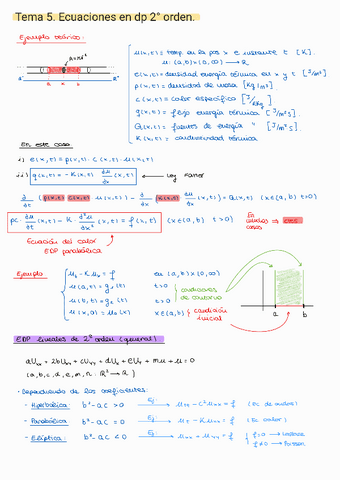 Tema 5. Ecuaciones en dp 2º orden.
Ejemplo teórico:
A = πd²
u(x,t) = temp. en la pos x e instante t [K].
u: (a,b)×(0,∞) → R
e(x,t) = densidad energía térmica en x y t [J/m³]
ρ(x,t) = densidad de masa [Kg/m³].
c(x,t) = calor específico [J/Kg K]
q(x,t) = flujo energía térmica [J/m²s].
Q(x,t) = fuentes de energía " [J/m³s].
K(x,t) = conductividad térmica
a b
En este caso
i) e(x,t) = ρ(x,t) · c(x,t) · u(x,t)
ii) q(x,t) = -K(x,t) du/dx (x,t) Ley Fourier
d/dt (ρ(x,t) c(x,t) u(x,t)) - d/dx (K(x,t) du/dx (x,t)) = Q(x,t) (x∈(a,b) t>0)
ρc du/dt (x,t) - K · d²u/dx² (x,t) = f(x,t) (x∈(a,b) t>0) En casos ⇒ ctes
Ecuación del calor
EDP parabólica
Ejemplo
u_t - K u_xx = f en (a,b)×(0,∞)
u(a,t) = g₁(t) t>0
u(b,t) = g₂(t) t>0
condiciones de contorno
u(x,0) = u₀(x) x∈(a,b) } condición inicial
a b
EDP lineales de 2º orden (general)
aU_xx + 2bU_xy + cU_yy + dU_x + eU_y + mu + n = 0
(a,b,c,d,e,m,n: R² → R)
- Dependiendo de los coeficientes:
· Hiperbólica: b² - ac > 0 Ej: → u_tt - c²u_xx = f (Ec de ondas)
· Parabólica b² - ac = 0 Ej: → u_t - K u_xx = f (Ec calor)
· Elíptica: b² - ac < 0 Ej: → u_xx + u_yy = f { f=0 → Laplace
f≠0 → Poisson